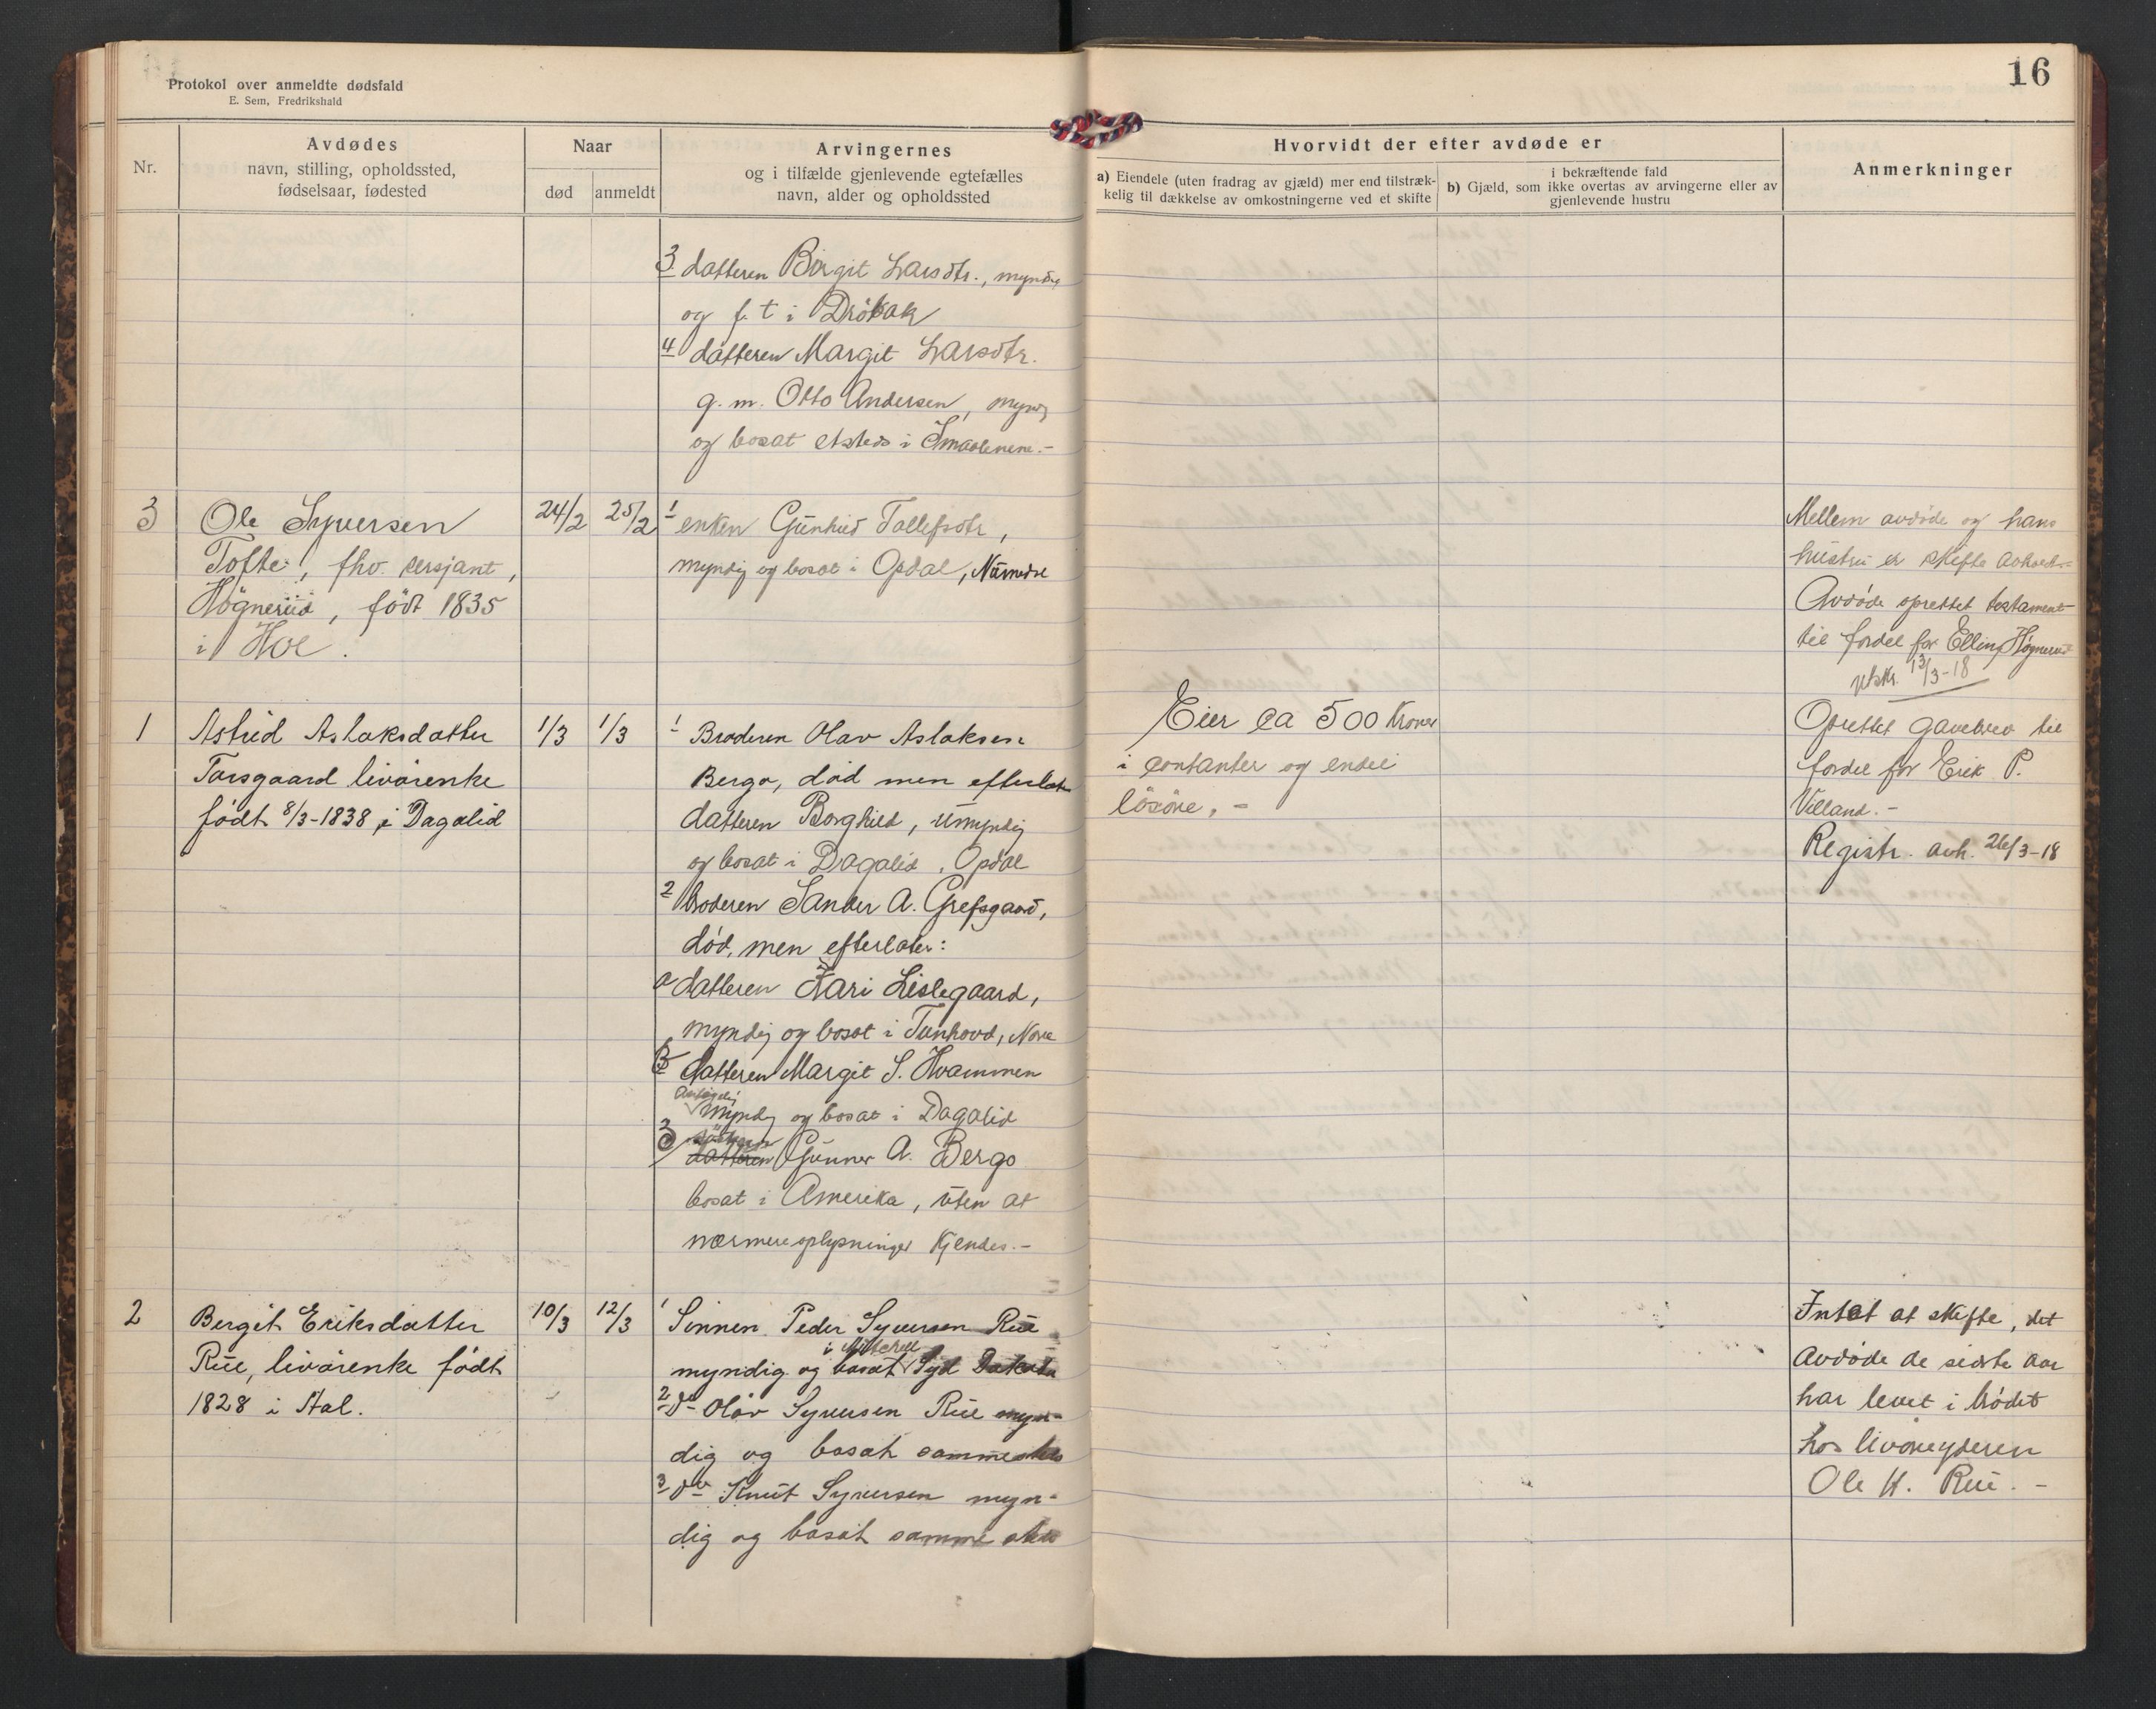 Protokol over anmeldte dødsfald
E. Sem, Fredrikshald
16
Nr.
Avdødes
navn, stilling, opholdssted,
fødselsaar, fødested
Naar
død
anmeldt
Arvingernes
og i tilfælde gjenlevende egtefælles
navn, alder og opholdssted
Hvorvidt der efter avdøde er
a) Eiendele (uten fradrag av gjæld) mer end tilstræk-
kelig til dækkelse av omkostningerne ved et skifte
i bekræftende fald
b) Gjæld, som ikke overtas av arvingerne eller av
gjenlevende hustru
Anmerkninger
3 datteren Birgit Larsdtr., myndig
og f. t i Dröbak
4 datteren Margit Larsdtr.
g. m. Otto Andersen, myndig
og bosat etsteds i Smaalenene.-
3
Ole Syversen
Tofte, fhv. sersjant,
Högnerud, födt 1835
i Hol.
24/2
25/2
1 enken Gunhild Tollefsdtr,
myndig og bosat i Opdal, Numedal
Mellem avdöde og hans
hustru er skifte avholdt.-
Avdöde oprettet testament
til fordel for Elling Högnerud
utskr. 13/3-18
1
Astrid Aslaksdatter
Torsgaard livörenke
födt 8/3-1838 i Dagalid
1/3
1/3
1 Broderen Olav Aslaksen
Bergo, död men efterlater
datteren Borghild, umyndig
og bosat i Dagalid, Opdal
2 broderen Sander A. Grefsgaard,
död, men efterlater:
a datteren Kari Lislegaard,
myndig og bosat i Tunhovd, Nore
b datteren Margit S. Hvammen
myndig og bosat i Dagalid
3 søsteren
datteren Gunnor A. Bergo
bosat i Amerika, uten at
nærmere oplysninger kjendes.-
Eier ca 500 kroner
i contanter og endel
lösöre. -
Oprettet gavebrev til
fordel for Erik P.
Villand.-
Registr. avh. 26/3-18
2
Bergit Eriksdatter
Rue, livörenke födt
1828 i Aal.
10/3
12/3
1 Sönnen Peder Syversen Rue
i Mitchell
myndig og bosat Syd Dakota
2 do Olav Syversen Rue myn-
dig og bosat sammesteds
3 do Knut Syversen myn-
dig og bosat sammesteds
Intet at skifte, det
avdöde de sidste aar
har levet i brödet
hos livöreyderen
Ole H. Rue. -